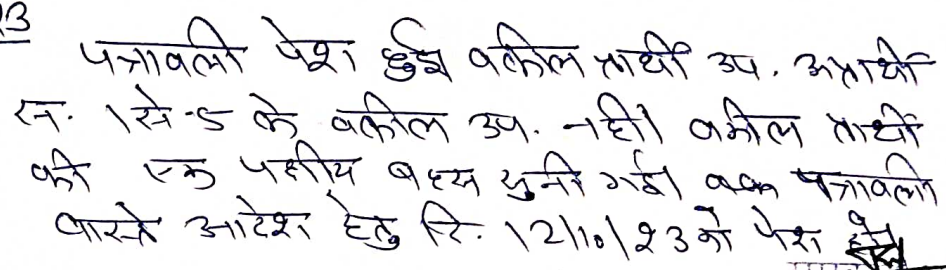 23
पत्रावली पेश हुई वकील प्रार्थी उप. अप्रार्थी
सं. 1 से 5 के वकील उप. नहीं। वकील प्रार्थी
की एक पक्षीय बहस सुनी गई। पत्रावली
वास्ते आदेश हेतु दि. 12/10/23 को पेश हो